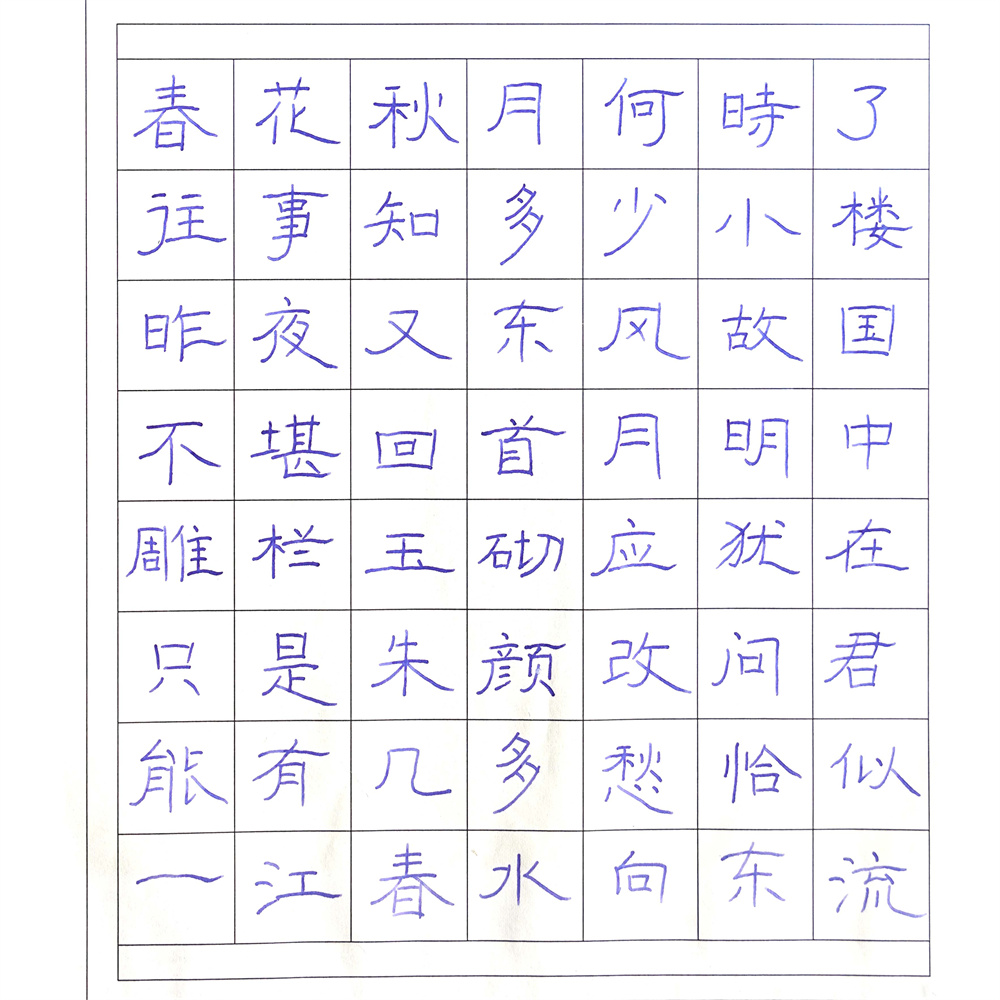 春花秋月何時了
往事知多少小楼
昨夜又东风故国
不堪回首月明中
雕栏玉砌应犹在
只是朱颜改问君
能有几多愁恰似
一江春水向东流